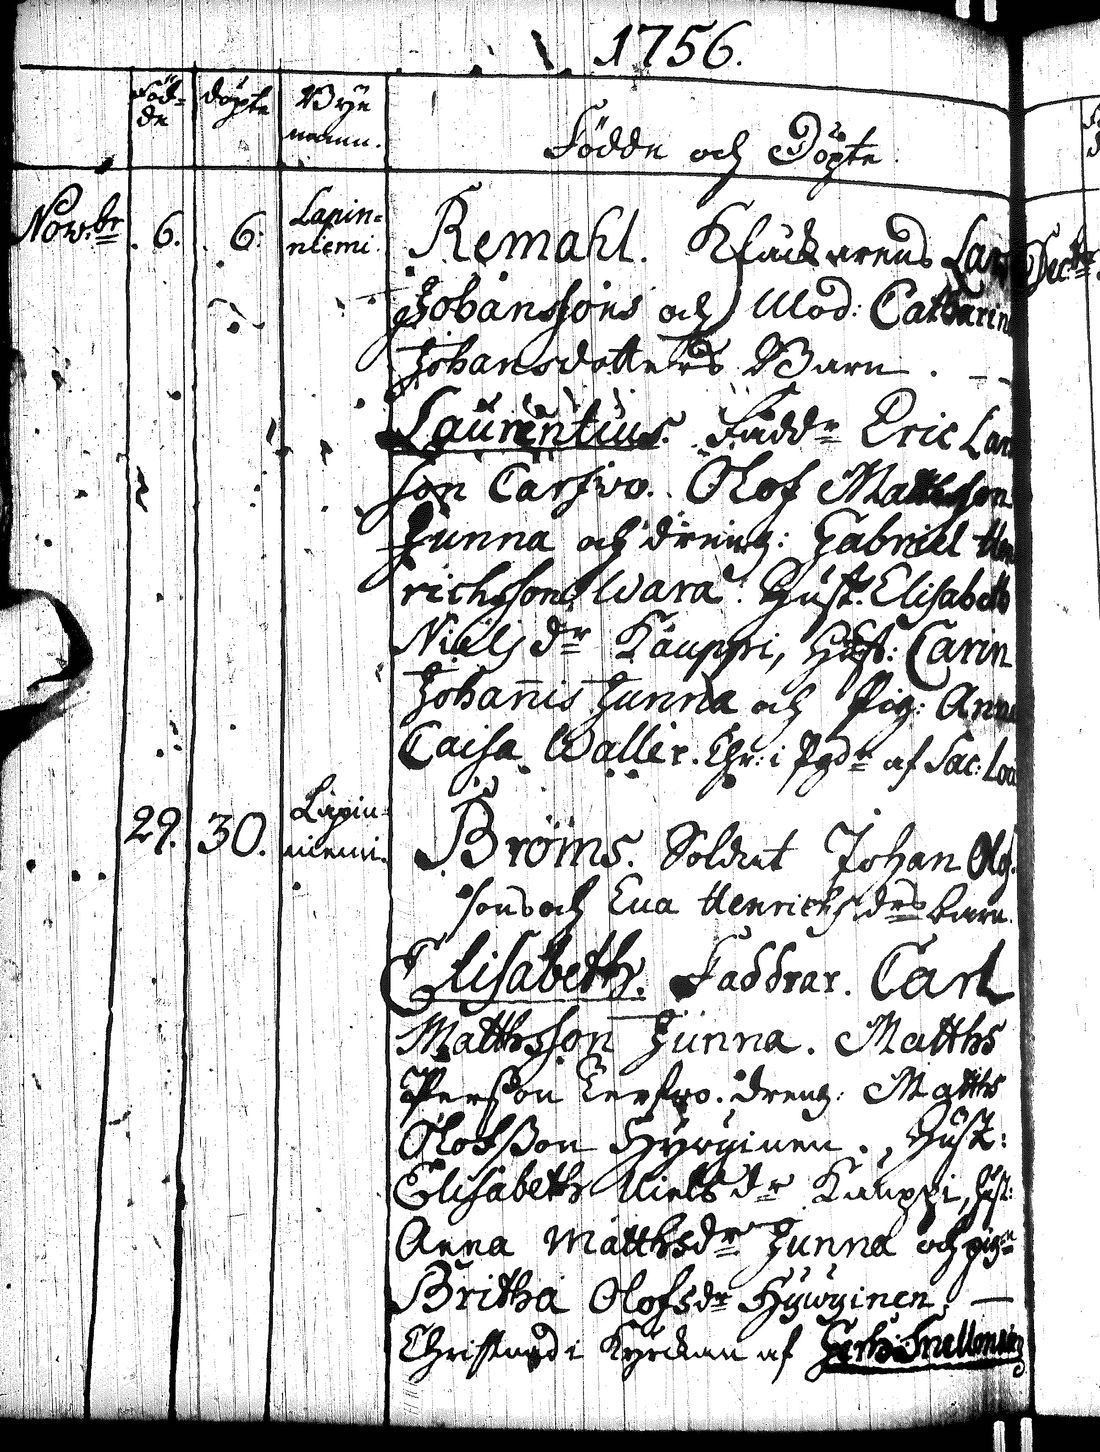 1756.
Föd-
de
döpte
Bÿe
namn.
Födde och Döpte.
Nowbr. 6. 6. Lapin-
niemi.
Remahl. Klåckarens Lars
Johanssons och Mod: Catharina
Johansdotters Barn.
Laurentius. Faddr Eric Lars
son Carfwo. Olof Mattsson
Junna och dreng: Gabriel Hen
richsson Wara. Hust. Elisabeth
Niels dr Kauppi, Hust: Carin
Johannis Junna och Pig: Anna
Caisa Waller. Chr: i Pgdn af Sac:
29. 30. Lapin-
niemi.
Bröms. Soldat Johan Olof-
sons och Eva Henrichsdrs barn.
Elisabeth. Faddrar. Carl
Matthsson Junna. Matths
Persson Eerfwo. dreng: Matths
Olofsson Hywginen., Hust:
Elisabeth Niels dr Kauppi, Hust:
Anna Matthsdr Junna och pign
Britha Olofsdr Hywginen. —
Christnad i Kyrckan af Snellman